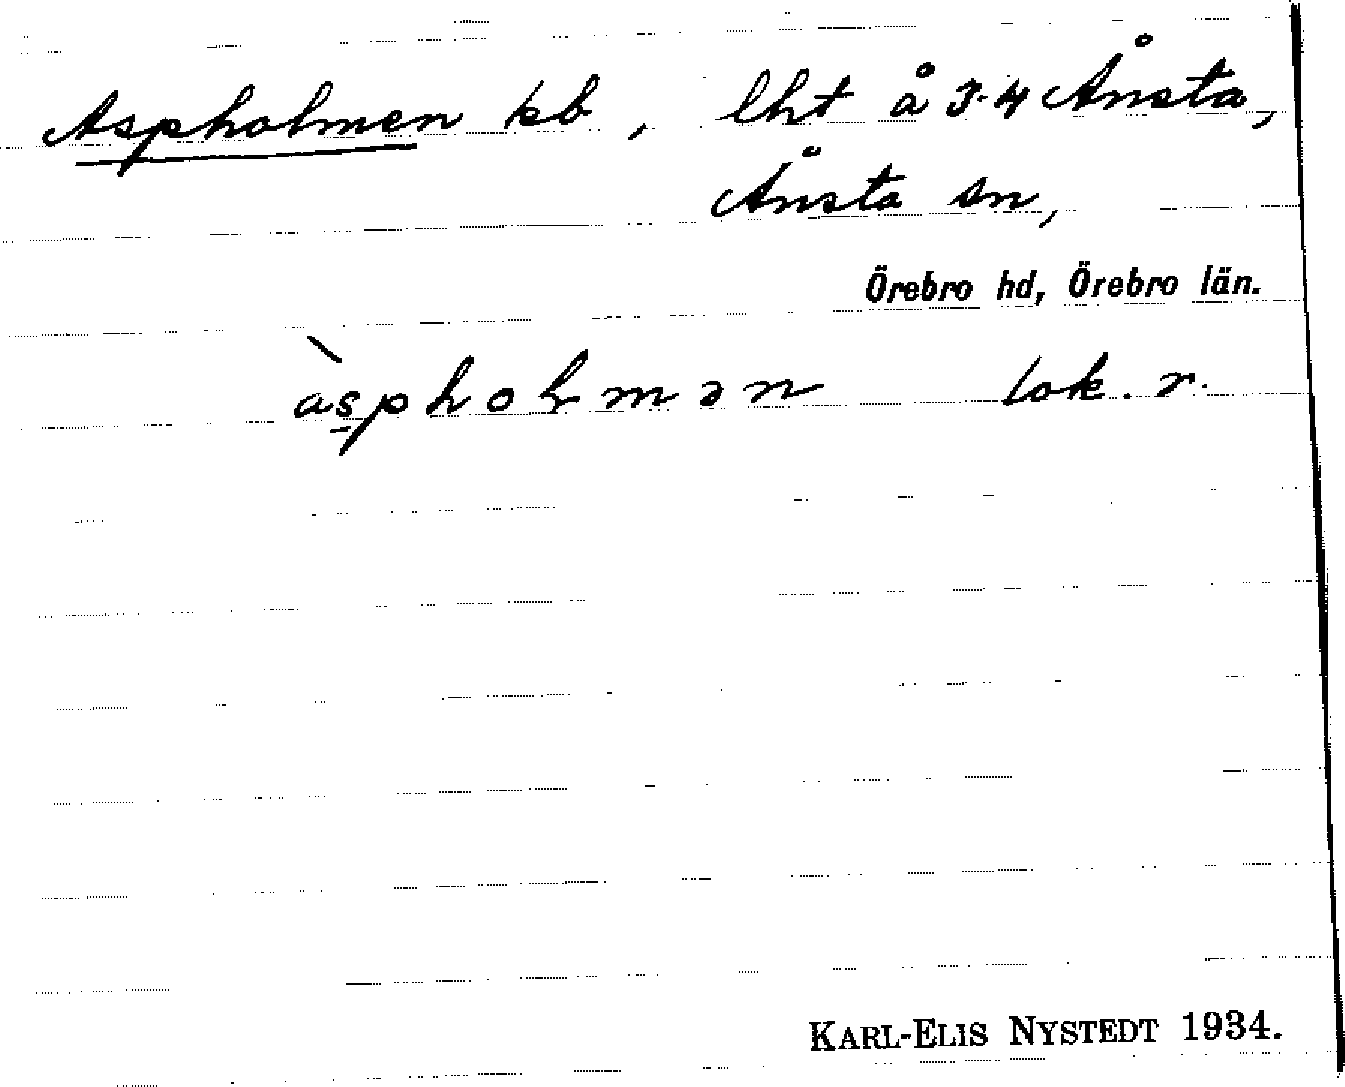 Aspholmen kb, lht å 3-4 Ånsta,
Ånsta sn,
Örebro hd, Örebro län.
àspholmən lok. r.
KARL-ELIS NYSTEDT 1934.